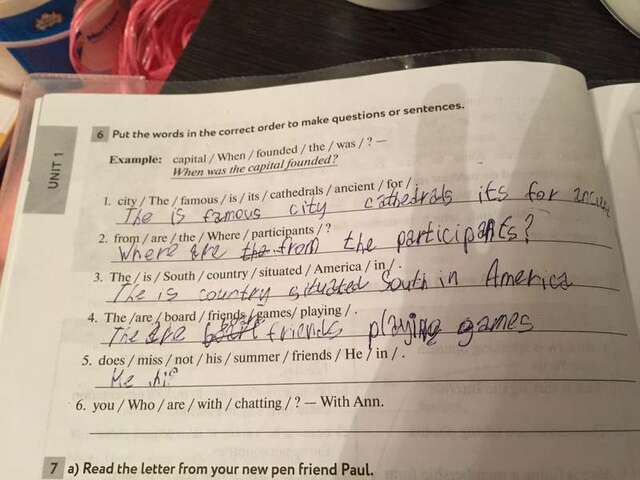 UNIT 1
6 Put the words in the correct order to make questions or sentences.
Example: capital / When / founded / the / was / ? —
When was the capital founded?
1. city / The / famous / is / its / cathedrals / ancient / for / .
The is famous city cathedrals its for
2. from / are / the / Where / participants / ?
Where are the from the participants?
3. The / is / South / country / situated / America / in / .
The is country situated South in America
4. The / are / board / friends / games / playing / .
The are friends playing games
5. does / miss / not / his / summer / friends / He / in / .
He his
6. you / Who / are / with / chatting / ? — With Ann.
7 a) Read the letter from your new pen friend Paul.